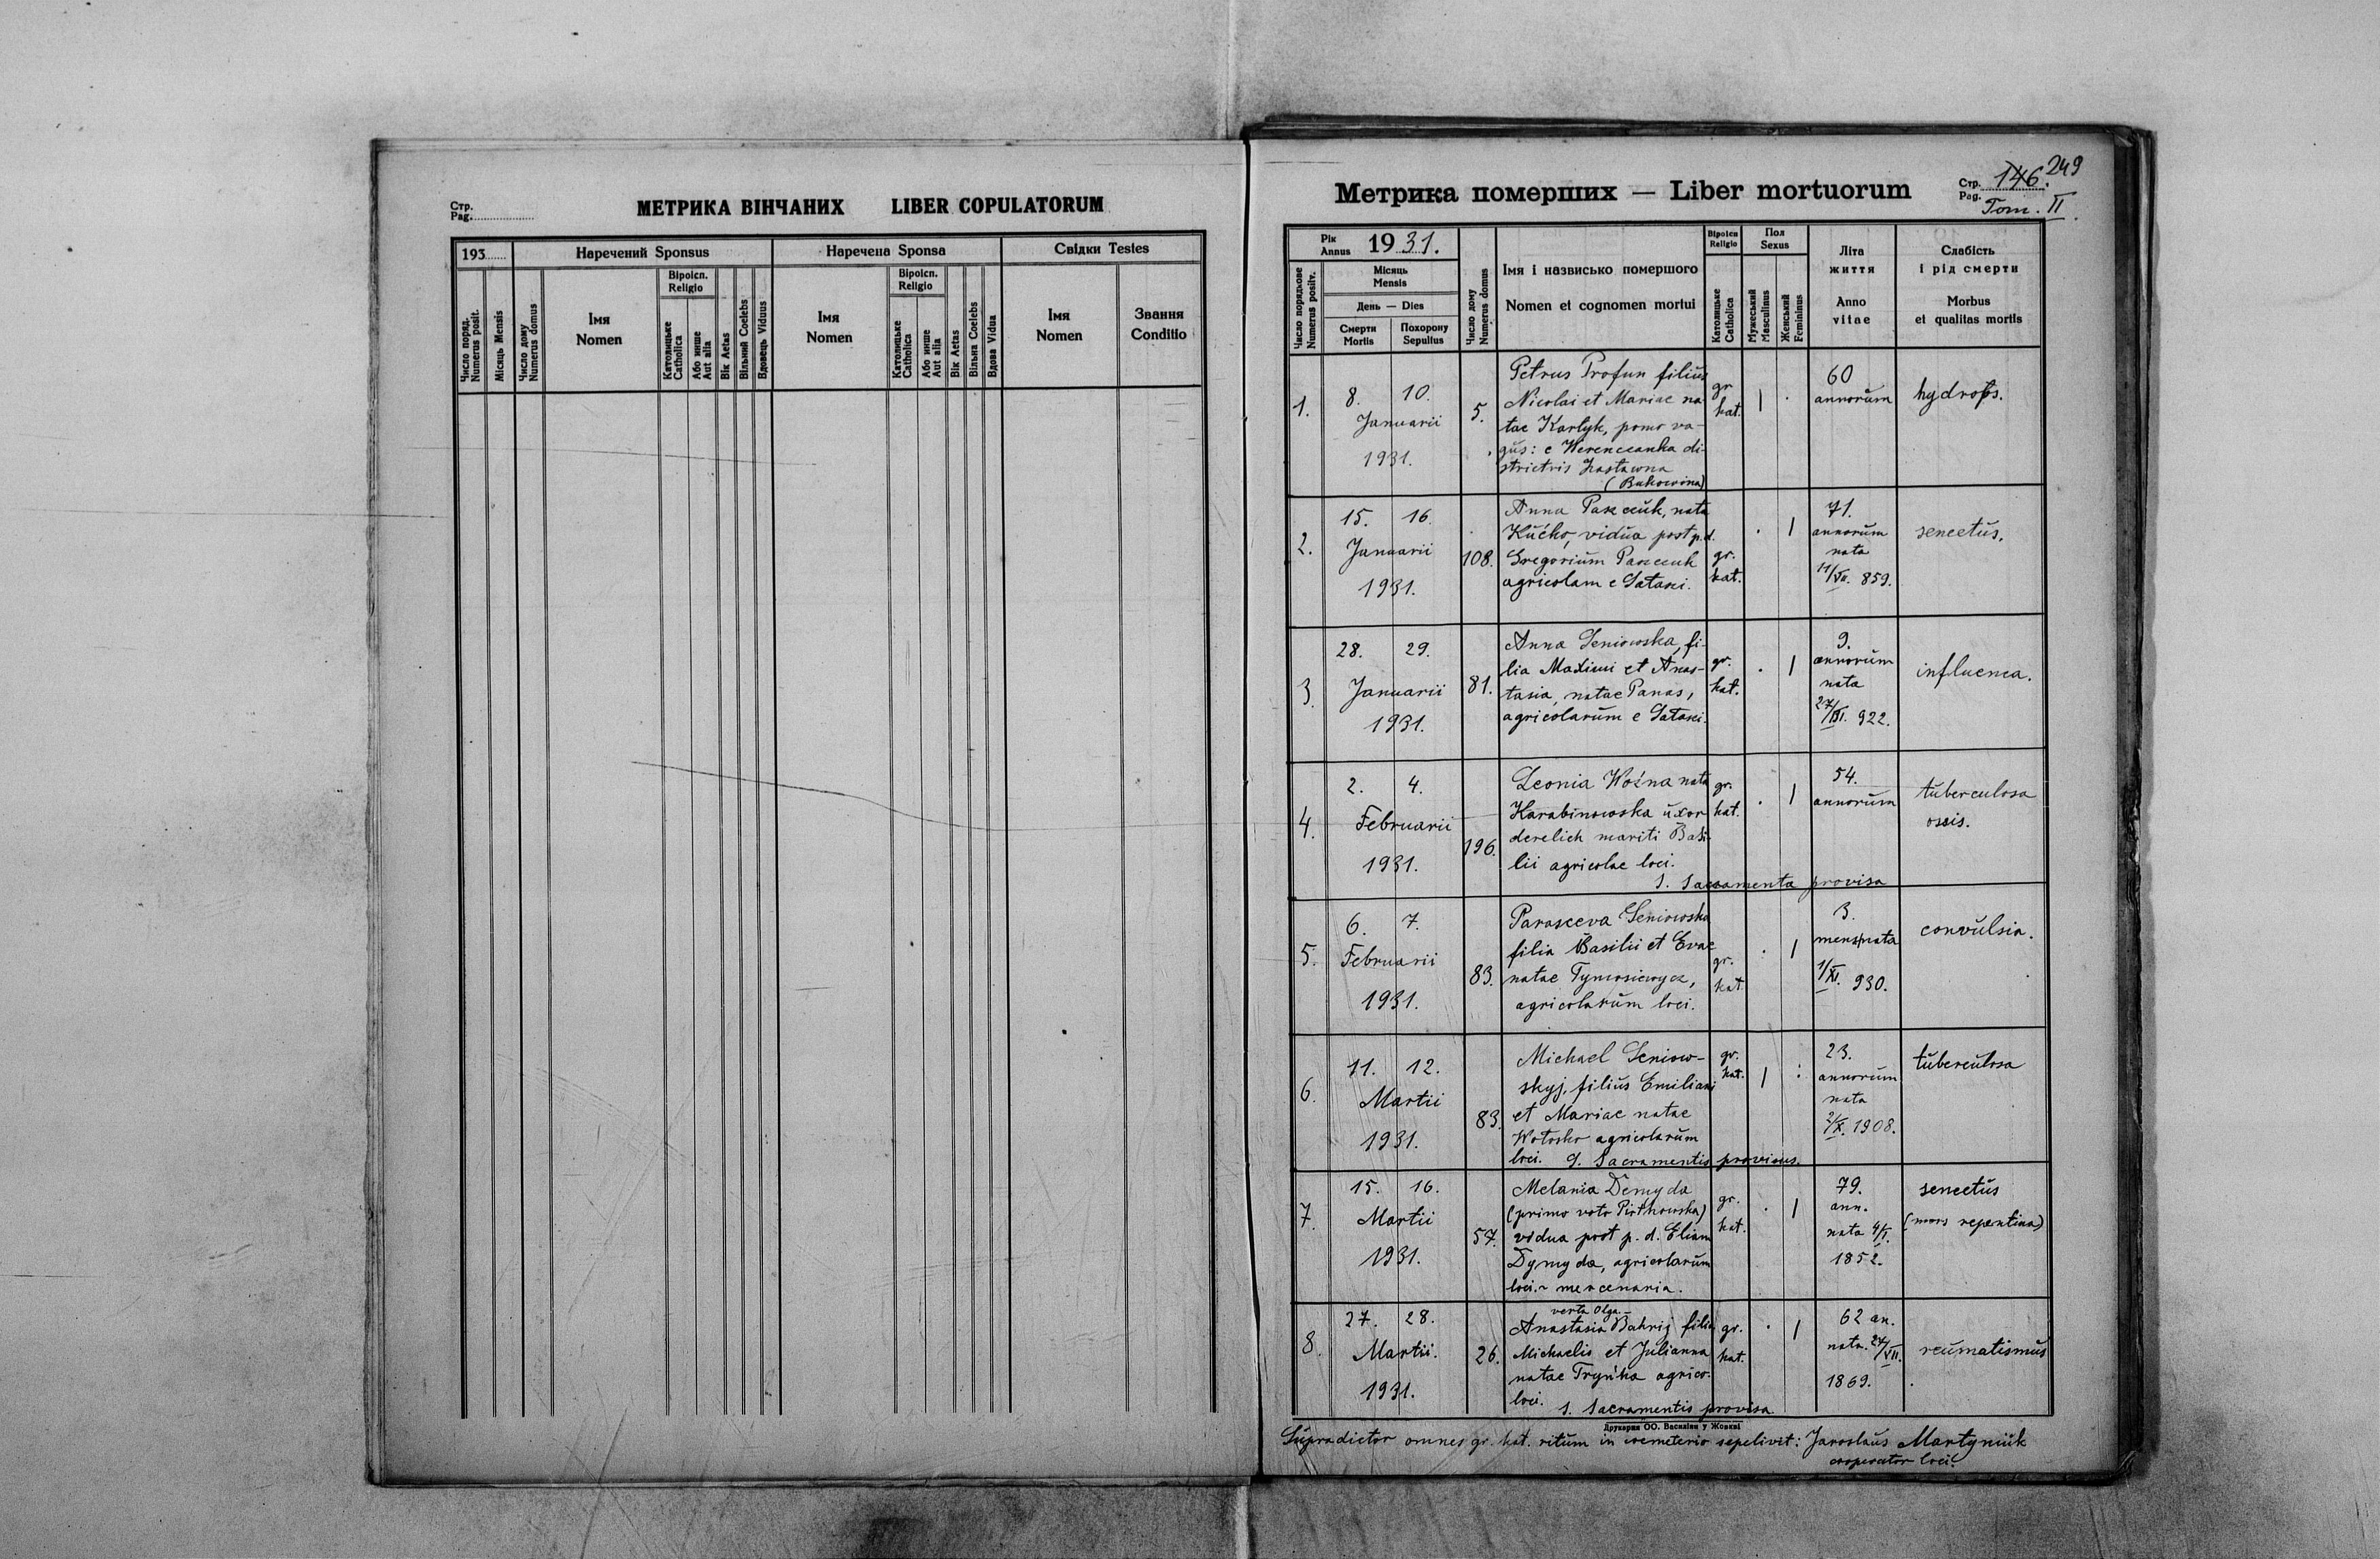 Стр.
Pag.
МЕТРИКА ВІНЧАНИХ LIBER COPULATORUM
193
Наречений Sponsus
Наречена Sponsa
Свідки Testes
Число поряд.
Numerus posit.
Місяць Mensis
Число дому
Numerus domus
Імя
Nomen
Віроісп.
Religio
Католицьке
Catholica
Або инше
Aut alia
Вік Aetas
Вільний Coelebs
Вдовець Viduus
Імя
Nomen
Віроісп.
Religio
Католицьке
Catholica
Або инше
Aut alia
Вік Aetas
Вільна Coelebs
Вдова Vidua
Імя
Nomen
Звання
Conditio
Метрика померших — Liber mortuorum
Стр.
Pag.
146. 249
Tom. II.
Рік
Annus 1931.
Число порядкове
Numerus positv.
Місяць
Mensis
День — Dies
Смерти
Mortis
Похорону
Sepultus
Число дому
Numerus domus
Імя і назвисько помершого
Nomen et cognomen mortui
Віроісп
Religio
Католицьке
Catholica
Пол
Sexus
Мужеський
Masculinus
Женський
Femininus
Літа
життя
Anno
vitae
Слабість
і рід смерти
Morbus
et qualitas mortis
1.
8. 10.
Januarii
1931.
5.
Petrus Profun filius
Nicolai et Mariae na-
tae Karlyk, pomo va-
gus: e Werenczanka di-
strictris Zastawna
(Bukowina)
gr
kat.
60
annorum
hydrops.
2.
15. 16.
Januarii
1931.
108.
Anna Paszczuk, nata
Kućko, vidua post p.d.
Gregorium Paszczuk
agricolam e
gr.
kat.
71.
annorum
nata
11/VII. 859.
senectus.
3.
28. 29.
Januarii
1931.
81.
Anna Seniowska, fi-
lia Maximi et Anas-
tasia, natae Panas,
agricolarum e
gr.
kat.
9.
annorum
nata
27/III. 922.
influenca.
4.
2. 4.
Februarii
1931.
196.
Leonia Woźna nata
Karabinowska uxor
derelich mariti Basi-
lii agricolae loci.
S. Sacramenta provisa
gr.
kat.
54.
annorum
tuberculosa
ossis.
5.
6. 7.
Februarii
1931.
83.
Parasceva Seniowska
filia Basilii et Evae
natae Tymosiewycz,
agricolarum loci.
gr.
kat.
3.
mens nata
1/XI. 930.
convulsia.
6.
11. 12.
Martii
1931.
83.
Michael Seniow-
skyj, filius Emiliani
et Mariae natae
Wołosko agricolarum
loci. S. Sacramentis provisus.
gr.
kat.
23.
annorum
nata
2/X. 1908.
tuberculosa
7.
15. 16.
Martii
1931.
57.
Melania Demyda
(primo voto Pietkowska)
vidua post p. d. Eliam
Dymyda, agricolarum
loci. mercenaria.
gr.
kat.
79.
ann.
nata 4/I.
1852.
senectus
(mors repentina)
8.
27. 28.
Martii.
1931.
26.
verta Olga.
Anastasia Bahrij filia
Michaelis et Julianna
natae Tryńka agrico-
loci. S. Sacramentis provisa.
gr.
kat.
62 an.
nata. 27/VII.
1869.
reumatismus
Друкарня ОО. Василіян у Жовкві
Supradictor omnes gr. kat. ritum in coemeterio sepelivit: Jaroslaus Martyniuk
cooperator loci.